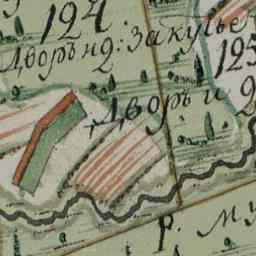 124
Дворъ н2: закупье
125
Дворъ и 2
Р. му